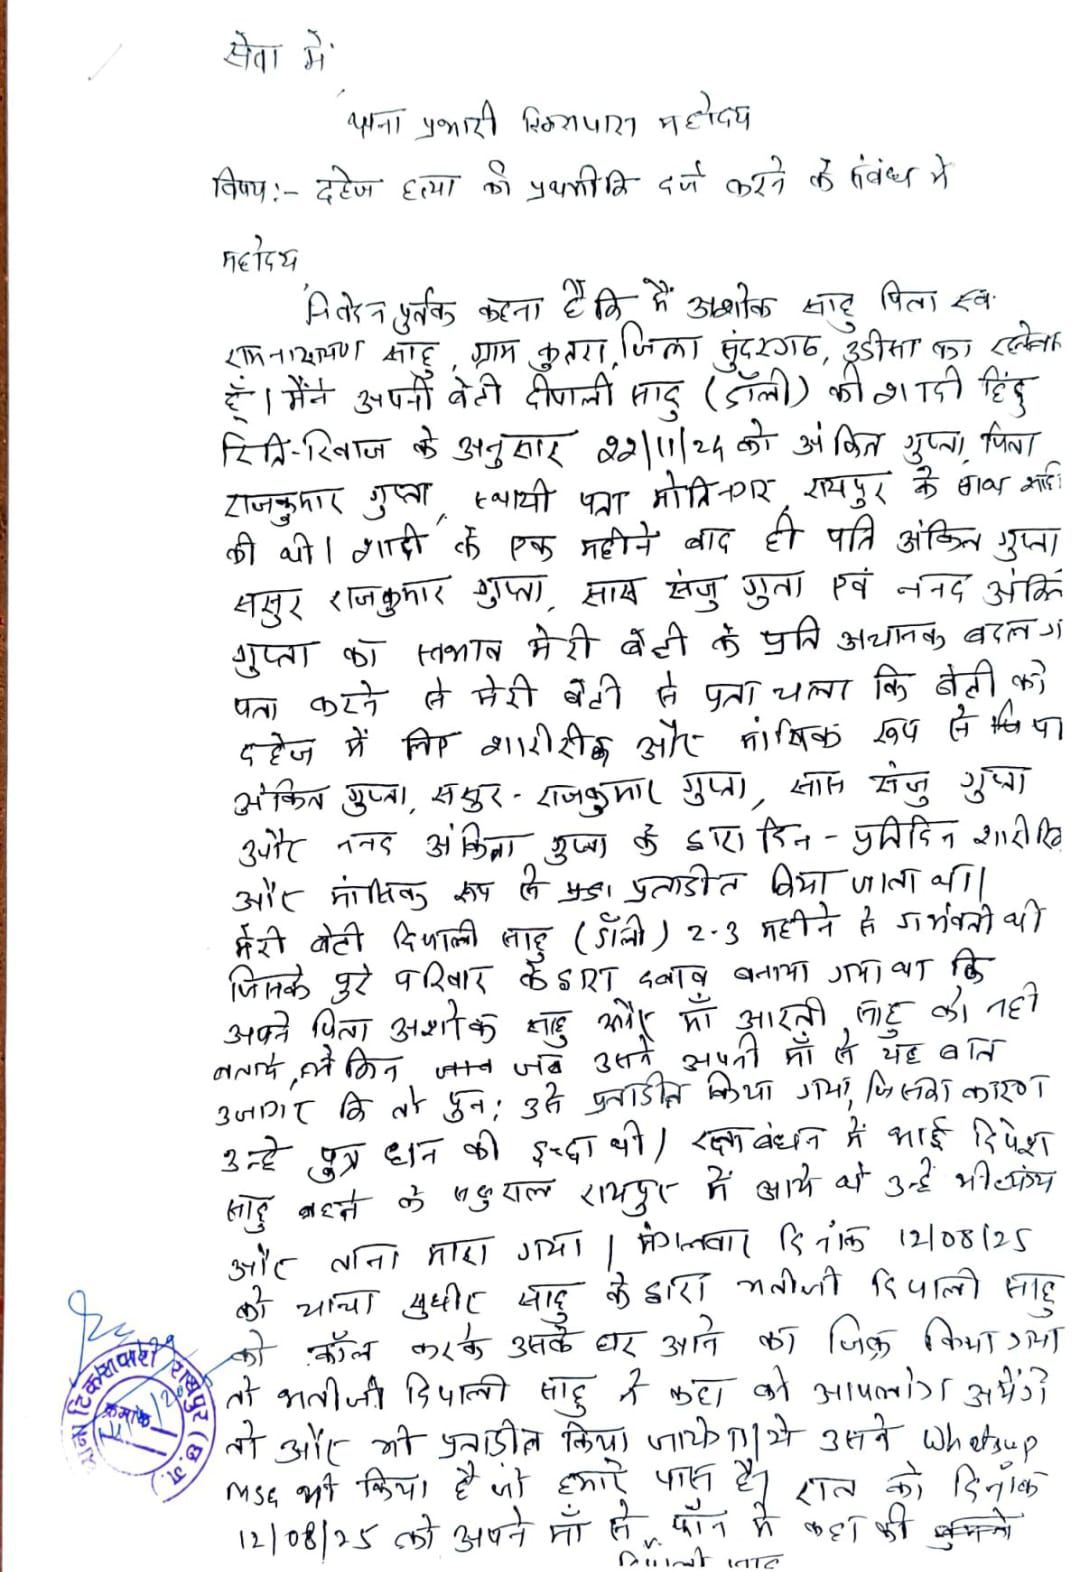 सेवा में
थाना प्रभारी टिकरापारा महोदय
विषय:- दहेज हत्या की प्रथमीकि दर्ज करने के संबंध में
महोदय
निवेदन पुर्वक कहना है कि मैं अशोक साहु पिता स्व.
रामनारायण साहु, ग्राम कुतरा, जिला सुंदरगढ, उडीसा का रहनेवा
हूँ। मैंने अपनी बेटी दीपाली साहु (डॉली) की शादी हिंदु
रिति-रिवाज के अनुसार 22/11/24 को अंकित गुप्ता, पिता
राजकुमार गुप्ता, स्थायी पता मोतिनगर, रायपुर के साथ शादी
की थी। शादी के एक महीने बाद ही पति अंकित गुप्ता
ससुर राजकुमार गुप्ता, सास संजु गुता एवं ननद अंकि
गुप्ता का स्वभाव मेरी बेटी के प्रति अचानक बदल ग
पता करने से मेरी बेटी से पता चला कि बेटी को
दहेज में लिए शारीरीक और मांसिक रूप से
अंकित गुप्ता, ससुर - राजकुमार गुप्ता, सास संजु गुप्ता
और ननद अंकिता गुप्ता के द्वारा दिन - प्रतिदिन शारीरि
और मांसिक रूप से प्रताडीत किया जाता था।
मेरी बेटी दिपाली साहु (डॉली) 2-3 महीने से गर्भवती थी
जिसके पुरे परिवार के द्वारा दवाब बनाया गया था कि
अपने पिता अशोक साहु और माँ आरती साहु को नही
बताये, लेकिन जब उसने अपनी माँ से यह बात
उजागर कि तो पुन: उसे प्रताडीत किया गया, जिसका कारण
उन्हे पुत्र धान की इच्छा थी। रक्षाबंधन में भाई दिपेश
साहु बहन के ससुराल रायपुर में आये थे उन्हे भी व्यंग्य
और ताना मारा गया। मंगलवार दिनांक 12/08/25
को चाचा सुधीर साहु के द्वारा भतीजी दिपाली साहु
को कॉल करके उसके घर आने का जिक्र किया गया
तो भतीजी दिपाली साहु ने कहा की आपलोग आयेंगे
तो और भी प्रताडीत किया जायेगा। ये उसने Whatsup
msg भी किया है जो हमारे पास है। रात को दिनाँक
12/08/25 को अपने माँ से फोन में कहा की
दिपाली साहु
थाना टिकरापारा रायपुर (छ.ग.)
क्रमांक